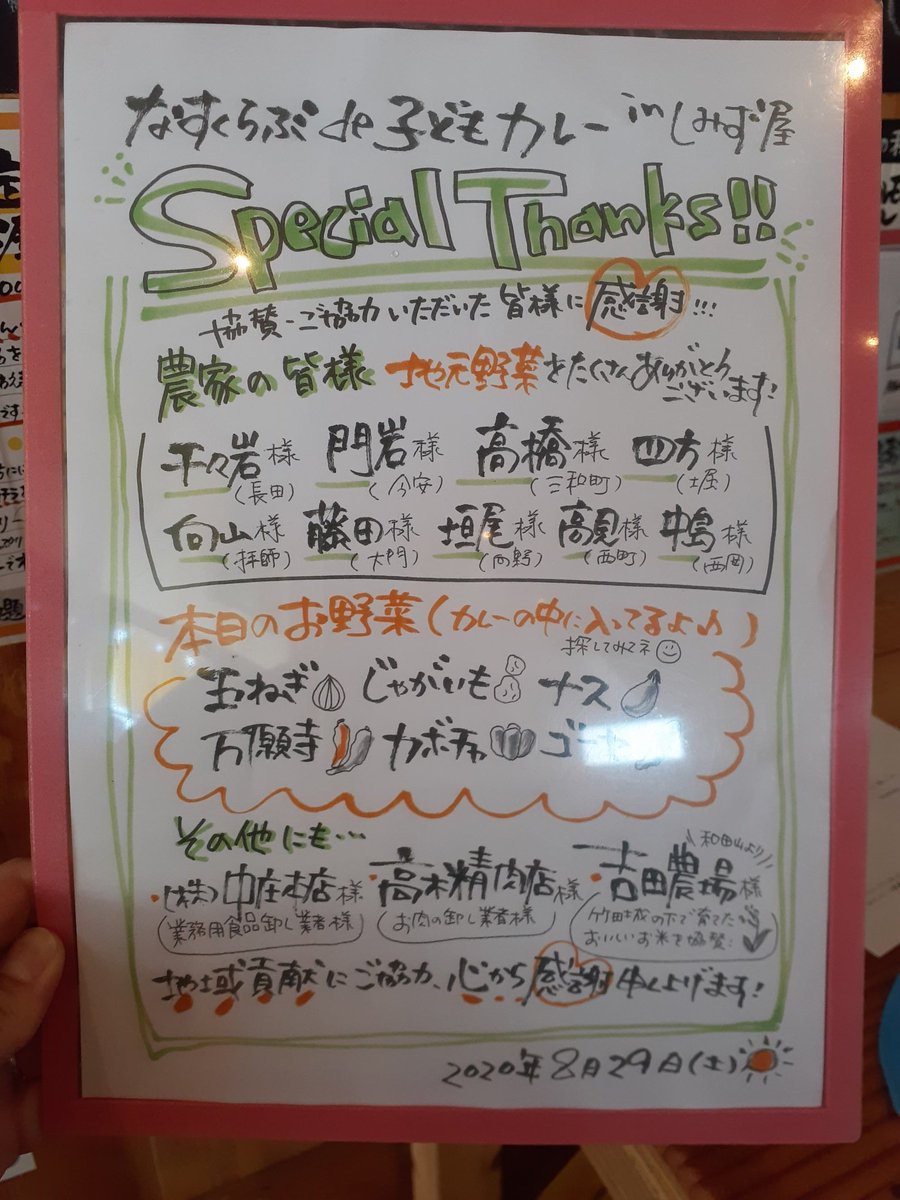 なすくらぶ de 子どもカレー in しみず屋
Special Thanks!!
協賛・ご協力いただいた皆様に感謝!!!
農家の皆様 地元野菜をたくさんありがとうございます!
千々岩様 門岩様 高橋様 四方様
(長田) (今安) (三和町) (土堀)
向山様 藤田様 垣尾様 高見様 中島様
(拝師) (大門) (向野) (西町) (西岡)
本日のお野菜(カレーの中に入ってるよ♪)
探してみてネ☺
玉ねぎ じゃがいも ナス
万願寺 カボチャ ゴーヤ
その他にも…
和田山より
・(株)中庄本店様 ・高木精肉店様 ・吉田農場様
(業務用食品卸し業者様) (お肉の卸し業者様) 竹田城の下で育てた
おいしいお米を協賛!
地域貢献にご協力、心から感謝申し上げます!
2020年8月29日(土)